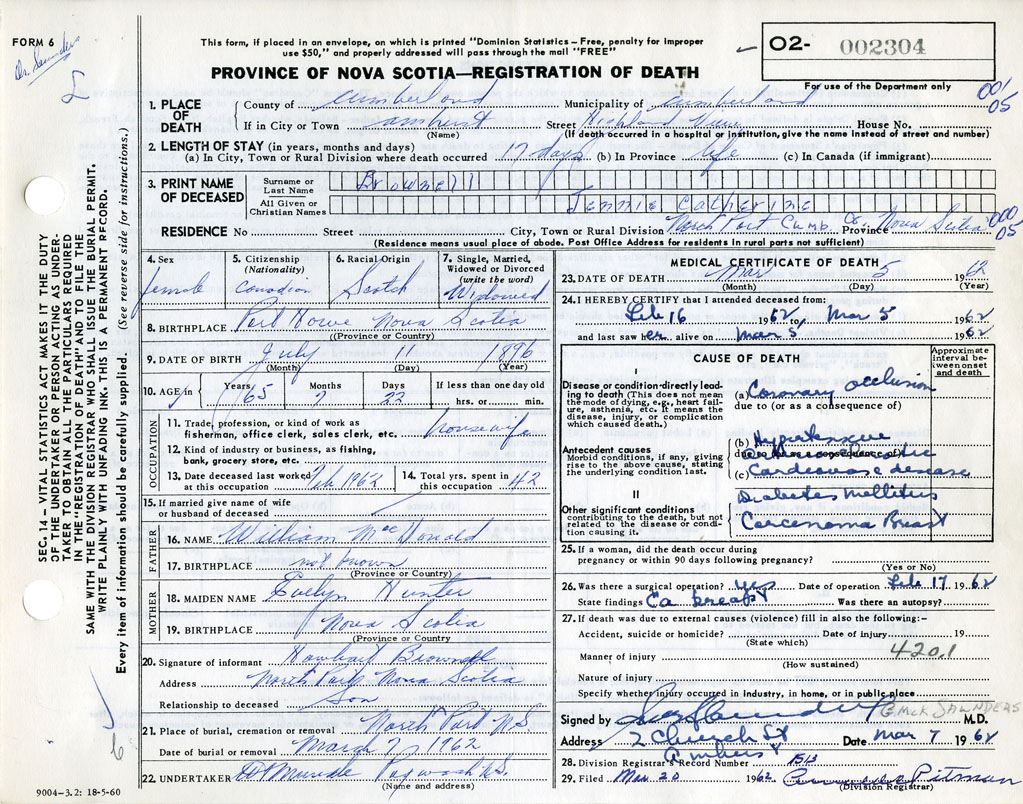 FORM 6
Dr. Saunders
This form, if placed in an envelope, on which is printed "Dominion Statistics – Free, penalty for improper
use $50," and properly addressed will pass through the mail "FREE"
PROVINCE OF NOVA SCOTIA—REGISTRATION OF DEATH
O2- 002304
For use of the Department only
001
05
1. PLACE OF DEATH
County of Cumberland Municipality of Cumberland
If in City or Town Amherst Street Highland View House No.
(Name) (If death occurred in a hospital or institution, give the name instead of street and number)
2. LENGTH OF STAY (in years, months and days)
(a) In City, Town or Rural Division where death occurred 17 days (b) In Province life (c) In Canada (if immigrant)
3. PRINT NAME OF DECEASED
Surname or Last Name Brownell
All Given or Christian Names Jennie Catherine
RESIDENCE No Street City, Town or Rural Division North Port Cumb. Co. Province Nova Scotia
000
05
(Residence means usual place of abode. Post Office Address for residents in rural parts not sufficient)
4. Sex female
5. Citizenship (Nationality) Canadian
6. Racial Origin Scotch
7. Single, Married, Widowed or Divorced (write the word) Widowed
8. BIRTHPLACE Port Howe Nova Scotia
((Province or Country)
9. DATE OF BIRTH July 11 1896
(Month) (Day) (Year)
10. AGE in Years 65 Months 7 Days 22 If less than one day old hrs. or min.
OCCUPATION
11. Trade, profession, or kind of work as fisherman, office clerk, sales clerk, etc. housewife
12. Kind of industry or business, as fishing, bank, grocery store, etc.
13. Date deceased last worked at this occupation Feb 1962
14. Total yrs. spent in this occupation 42
15. If married give name of wife or husband of deceased
FATHER
16. NAME William MacDonald
17. BIRTHPLACE not known
(Province or Country)
MOTHER
18. MAIDEN NAME Evelyn Hunter
19. BIRTHPLACE Nova Scotia
(Province or Country)
20. Signature of informant Brownell
Address North Port Nova Scotia
Relationship to deceased Son
21. Place of burial, cremation or removal North Port N.S.
Date of burial or removal March 7, 1962
22. UNDERTAKER Pugwash N.S.
(Name and address)
9004-3.2: 18-5-60
MEDICAL CERTIFICATE OF DEATH
23. DATE OF DEATH Mar 5 1962
(Month) (Day) (Year)
24. I HEREBY CERTIFY that I attended deceased from:
Feb 16 1962 to Mar 5 1962
and last saw her alive on Mar 5 1962
CAUSE OF DEATH
Approximate interval between onset and death
I
Disease or condition directly leading to death (This does not mean the mode of dying, e.g., heart failure, asthenia, etc. It means the disease, injury, or complication which caused death.)
(a) Coronary occlusion
due to (or as a consequence of)
Antecedent causes
Morbid conditions, if any, giving rise to the above cause, stating the underlying condition last.
(b) Hypertensive
due to (or as a consequence of)
(c) Cardiovasc disease
II
Other significant conditions
contributing to the death, but not related to the disease or condition causing it.
Diabetes Mellitus
Carcenoma Breast
25. If a woman, did the death occur during pregnancy or within 90 days following pregnancy?
(Yes or No)
26. Was there a surgical operation? yes Date of operation Feb 17 1962
State findings Ca breast Was there an autopsy?
27. If death was due to external causes (violence) fill in also the following:-
Accident, suicide or homicide? Date of injury 19
(State which)
4201
Manner of injury
(How sustained)
Nature of injury
Specify whether injury occurred in industry, in home, or in public place
G. McK SAUNDERS
Signed by M.D.
Address 2 Church St Date Mar 7 1962
Amherst
28. Division Registrar's Record Number 1513
29. Filed Mar 20 1962 Pitman
(Division Registrar)
SEC. 14 – VITAL STATISTICS ACT MAKES IT THE DUTY
OF THE UNDERTAKER OR PERSON ACTING AS UNDER-
TAKER TO OBTAIN ALL THE PARTICULARS REQUIRED
IN THE "REGISTRATION OF DEATH" AND TO FILE THE
SAME WITH THE DIVISION REGISTRAR WHO SHALL ISSUE THE BURIAL PERMIT.
WRITE PLAINLY WITH UNFADING INK. THIS IS A PERMANENT RECORD.
Every item of information should be carefully supplied. (See reverse side for instructions.)